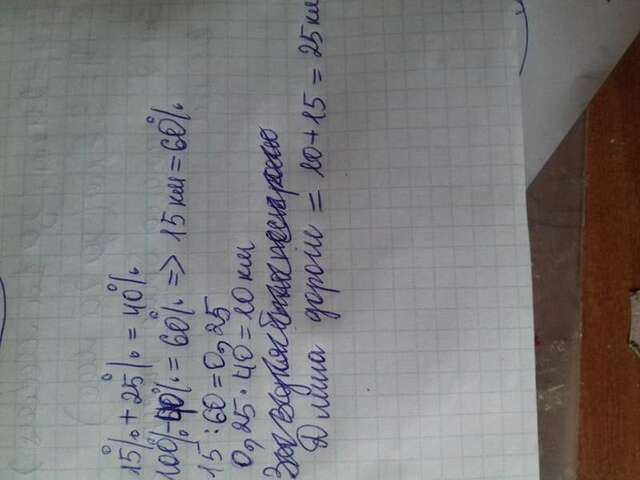 15% + 25% = 40%
100% - 40% = 60% => 15 км = 60%
15 : 60 = 0,25
0,25 · 40 = 10 км
Длина дороги = 10 + 15 = 25 км